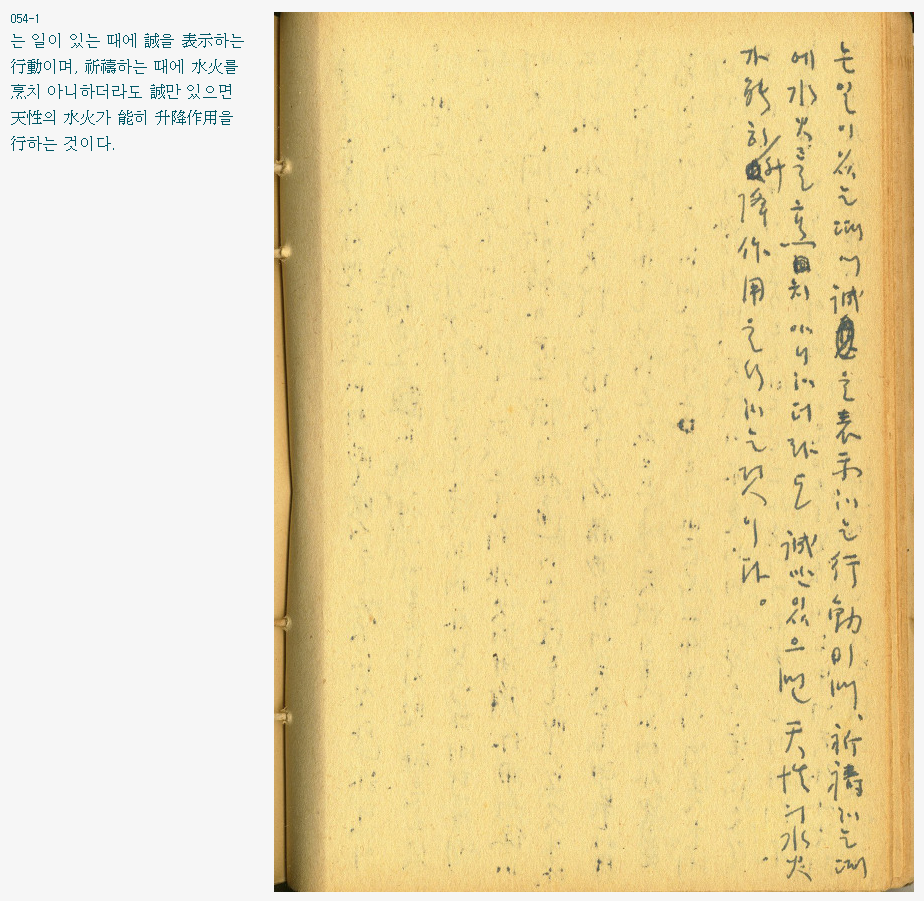 054-1
는 일이 있는 때에 誠을 表示하는
行動이며, 祈禱하는 때에 水火를
烹치 아니하더라도 誠만 있으면
天性의 水火가 能히 升降作用을
行하는 것이다.
는 일이 있는 때에 誠을 表示하는 行動이며, 祈禱하는 때
에 水火를 烹치 아니하더라도 誠만 있으면 天性의 水火
가 能히 升降作用을 行하는 것이다。